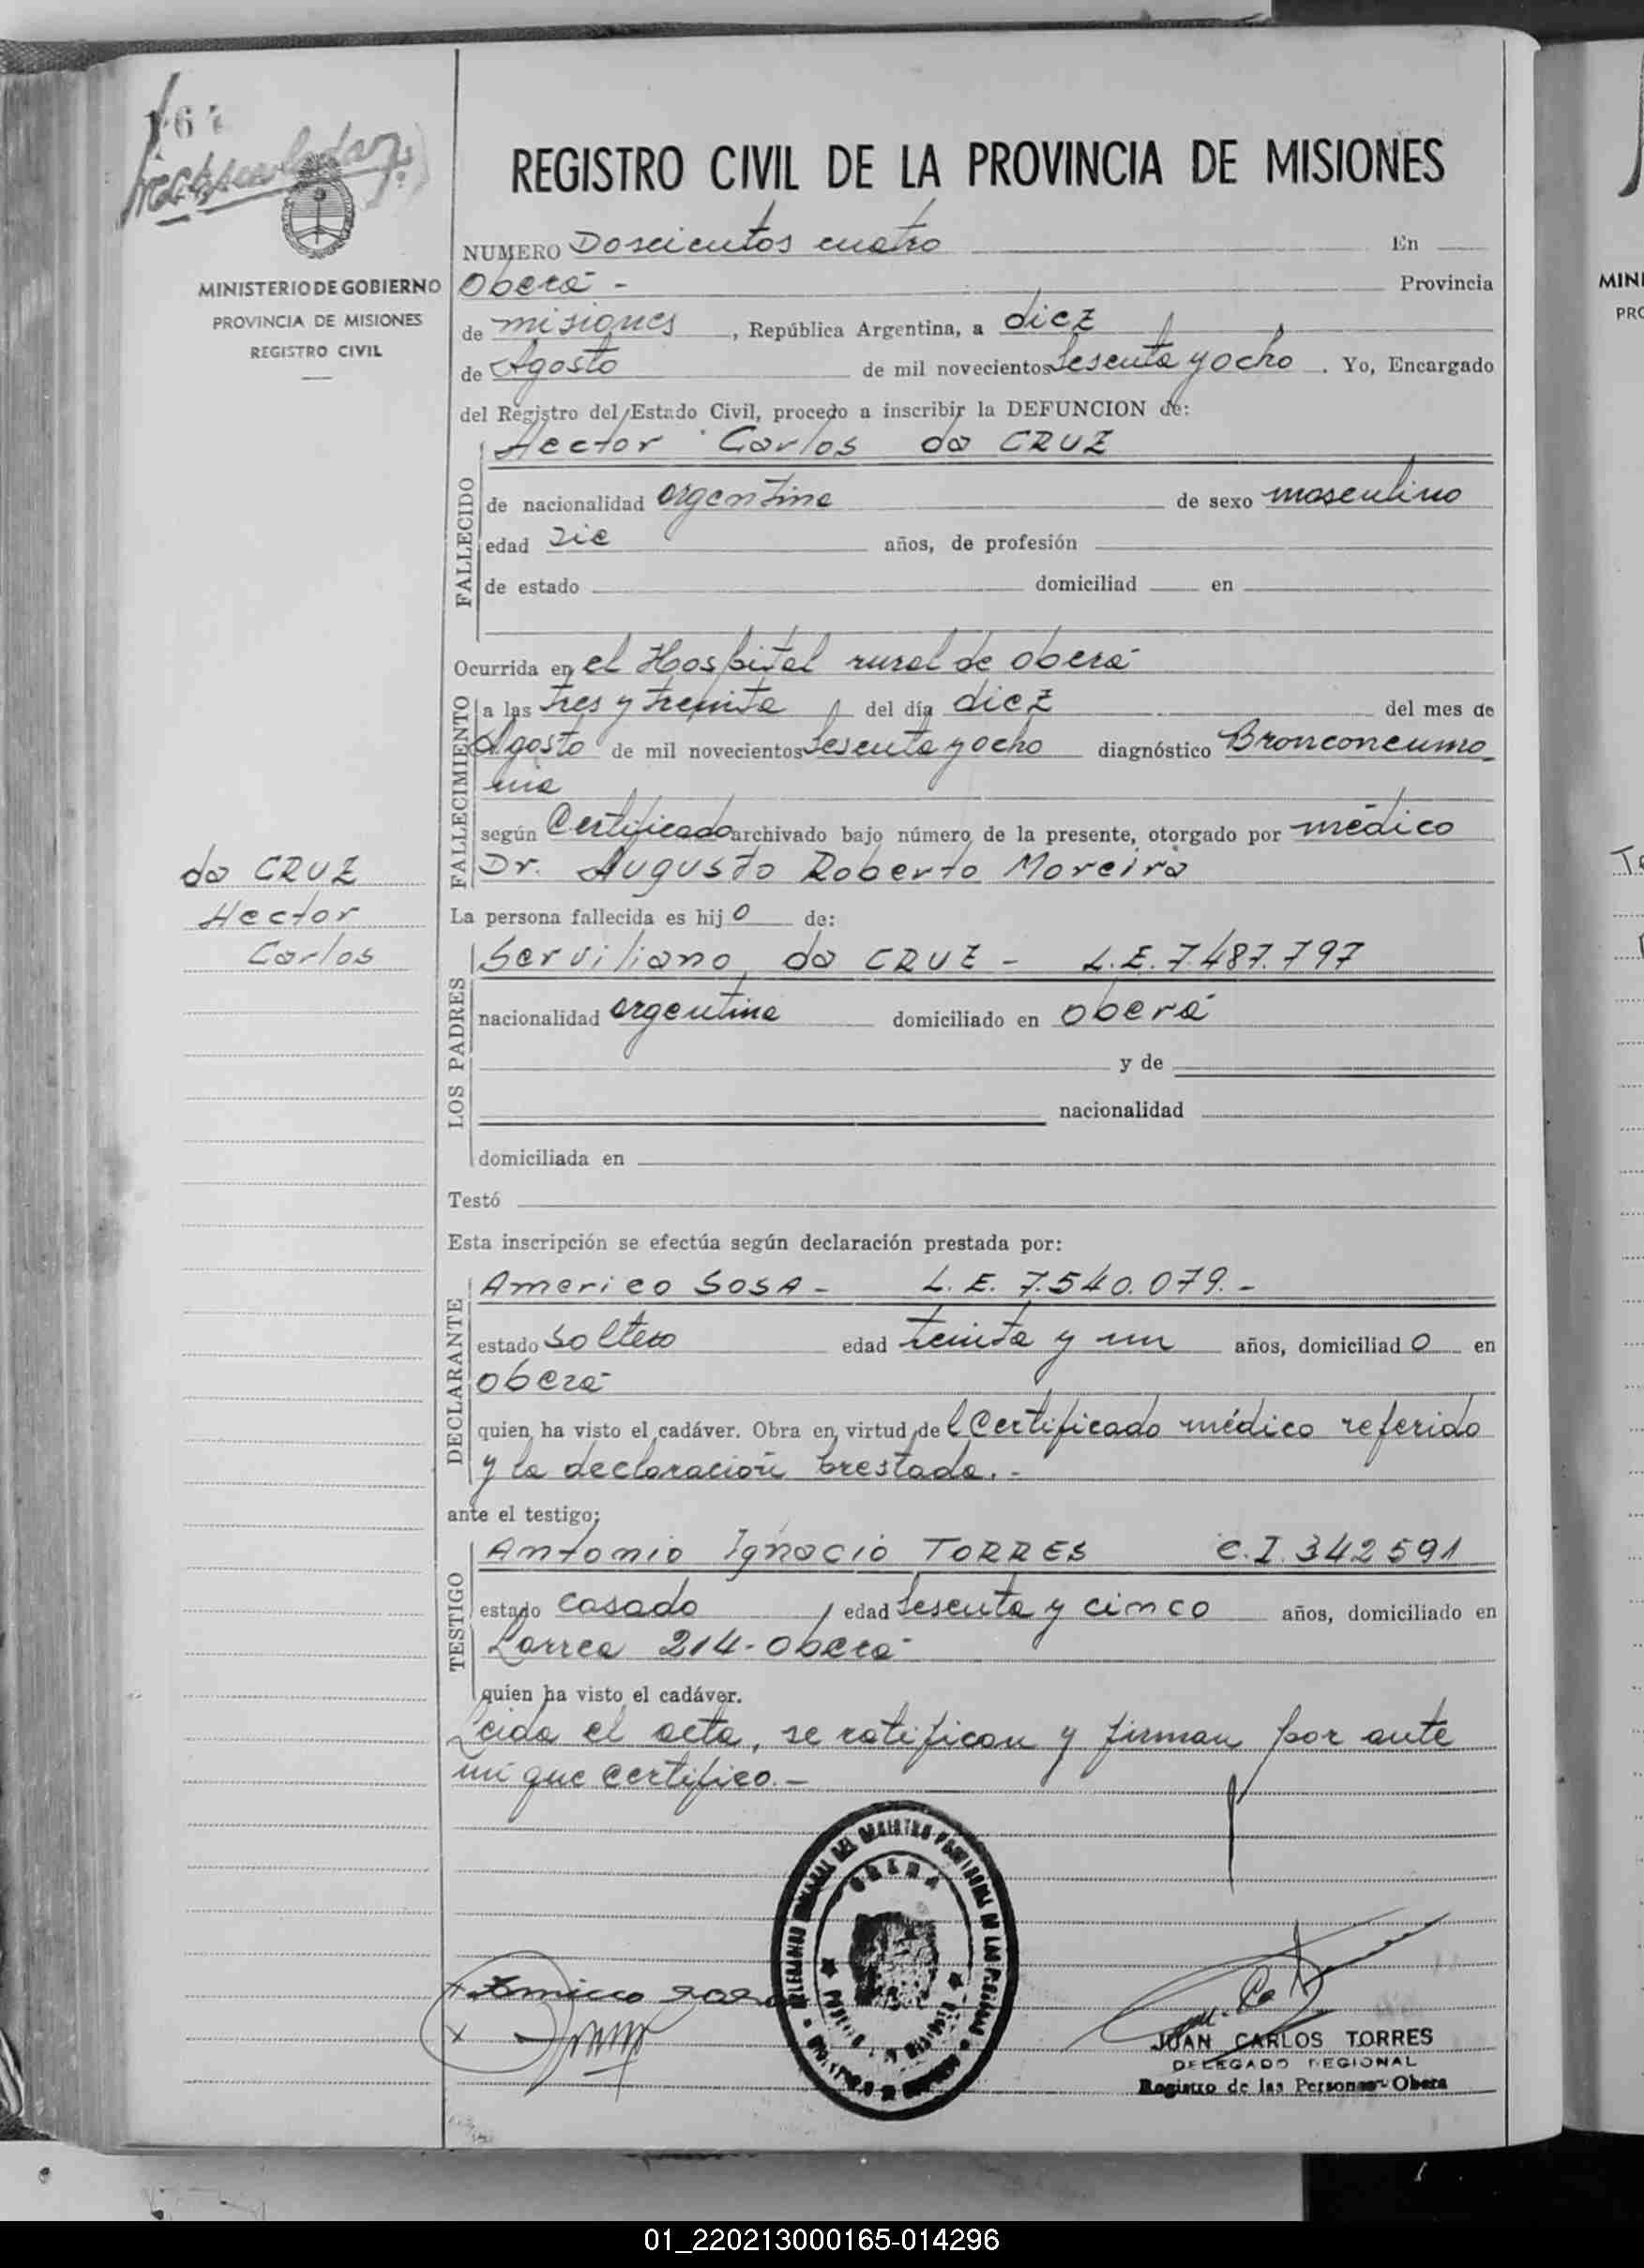 REGISTRO CIVIL DE LA PROVINCIA DE MISIONES
MINISTERIO DE GOBIERNO
PROVINCIA DE MISIONES
REGISTRO CIVIL
NUMERO Doscientos cuatro En
Oberá - Provincia
de misiones, República Argentina, a diez
de Agosto de mil novecientos sesenta y ocho. Yo, Encargado
del Registro del Estado Civil, procedo a inscribir la DEFUNCION de:
FALLECIDO
Hector Carlos da CRUZ
de nacionalidad argentina de sexo masculino
edad años, de profesión
de estado domiciliad en
Ocurrida en el Hospital rural de oberá
FALLECIMIENTO
a las tres y treinta del día diez del mes de
Agosto de mil novecientos sesenta y ocho diagnóstico Bronconeumo
nia
según Certificado archivado bajo número de la presente, otorgado por médico
Dr. Augusto Roberto Moreira
da CRUZ
Hector
Carlos
La persona fallecida es hijo de:
LOS PADRES
Serviliano da CRUZ - L.E. 7.487.797
nacionalidad argentina domiciliado en oberá
y de
nacionalidad
domiciliada en
Testó
Esta inscripción se efectúa según declaración prestada por:
DECLARANTE
Americo SOSA - L.E. 7.540.079.-
estado soltero edad treinta y un años, domiciliado en
oberá
quien ha visto el cadáver. Obra en virtud del Certificado médico referido
y la declaración prestada.-
ante el testigo:
TESTIGO
Antonio Ignacio TORRES C.I. 342591
estado casado edad sesenta y cinco años, domiciliado en
Larrea 214 - Oberá
quien ha visto el cadáver.
Leida el acta, se ratifican y firman por ante
mí que certifico.-
OBERA
JUAN CARLOS TORRES
DELEGADO REGIONAL
Registro de las Personas - Obera
MINI
PRO
01_220213000165-014296